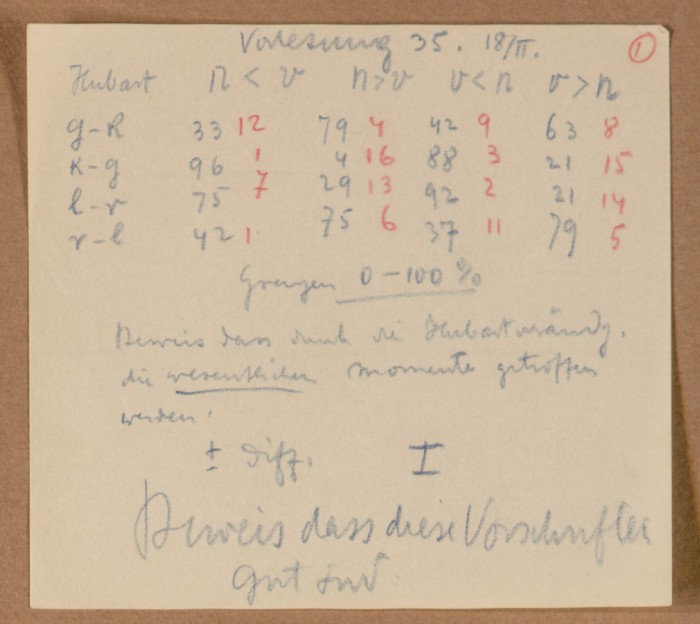 Vorlesung 35. 18/II. 1
Hubart n < v n > v v < n v > n
g-k 33 12 79 4 42 9 63 8
k-g 96 1 4 16 88 3 21 15
l-r 75 7 29 13 92 2 21 14
r-l 42 1 75 6 37 11 79 5
Grenzen 0-100 %
Beweis dass durch die Hubartveränd.
die wesentlichen momente getroffen
werden.
± Diff. I
Beweis dass diese Vorschriften
gut sind